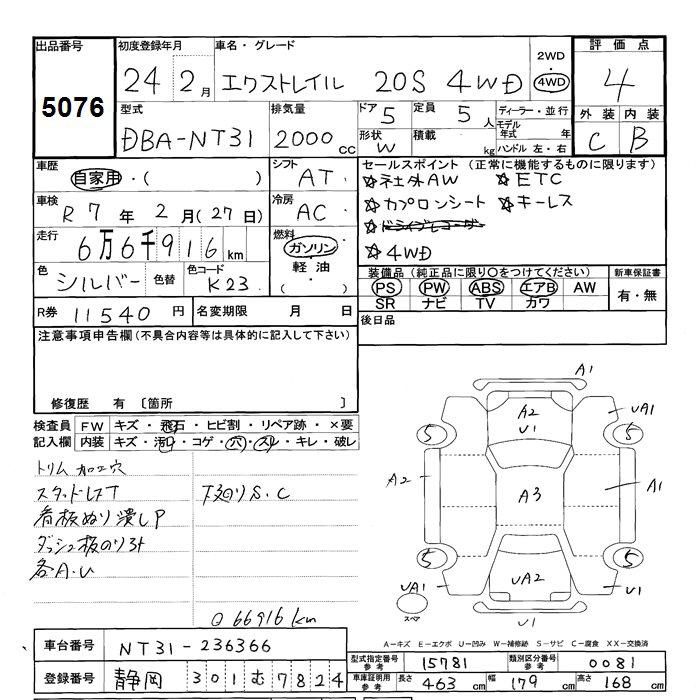 出品番号
5076
初度登録年月
24 2月
車名・グレード
エクストレイル 20S 4WD
2WD
・
4WD
評価点
4
外装 内装
C B
型式
DBA-NT31
排気量
2000 cc
ドア 5
形状 W
定員 5人
積載 kg
ディーラー・並行
モデル年式 年
ハンドル 左・右
車歴
自家用・( )
シフト
AT
車検
R7年2月(27日)
冷房
AC
走行
6万6千916km
燃料
ガソリン
軽油
( )
色
シルバー
色替
色コード
K23
R券 11540円
名変期限 月 日
セールスポイント(正常に機能するものに限ります)
☆社外AW ☆ETC
☆カプロンシート ☆キーレス
☆ドライブレコーダー
☆4WD
装備品(純正品に限り○をつけてください)
PS PW ABS エアB AW
SR ナビ TV カワ
新車保証書
有・無
後日品
注意事項申告欄(不具合内容等は具体的に記入して下さい)
修復歴 有 〔箇所 〕
検査員記入欄
FW キズ・飛石・ヒビ割・リペア跡・×要
内装 キズ・汚れ・コゲ・穴・スレ・キレ・破レ
トリム加工穴
スタッドレスT
下廻りS.C
看板ぬり潰しP
ダッシュ板のり跡
各A.U
⊙66916km
A1
A2
U1
UA1
5
5
A2
A3
A1
5
5
UA1
UA2
U1
スペア
U1
A-キズ E-エクボ U-凹み W-補修跡 S-サビ C-腐食 XX-交換済
車台番号 NT31-236366
登録番号 静岡 301 む 7824
型式指定番号 参考 15781
類別区分番号 参考 0081
車庫証明用 参考 長さ 463cm 幅 179cm 高さ 168cm